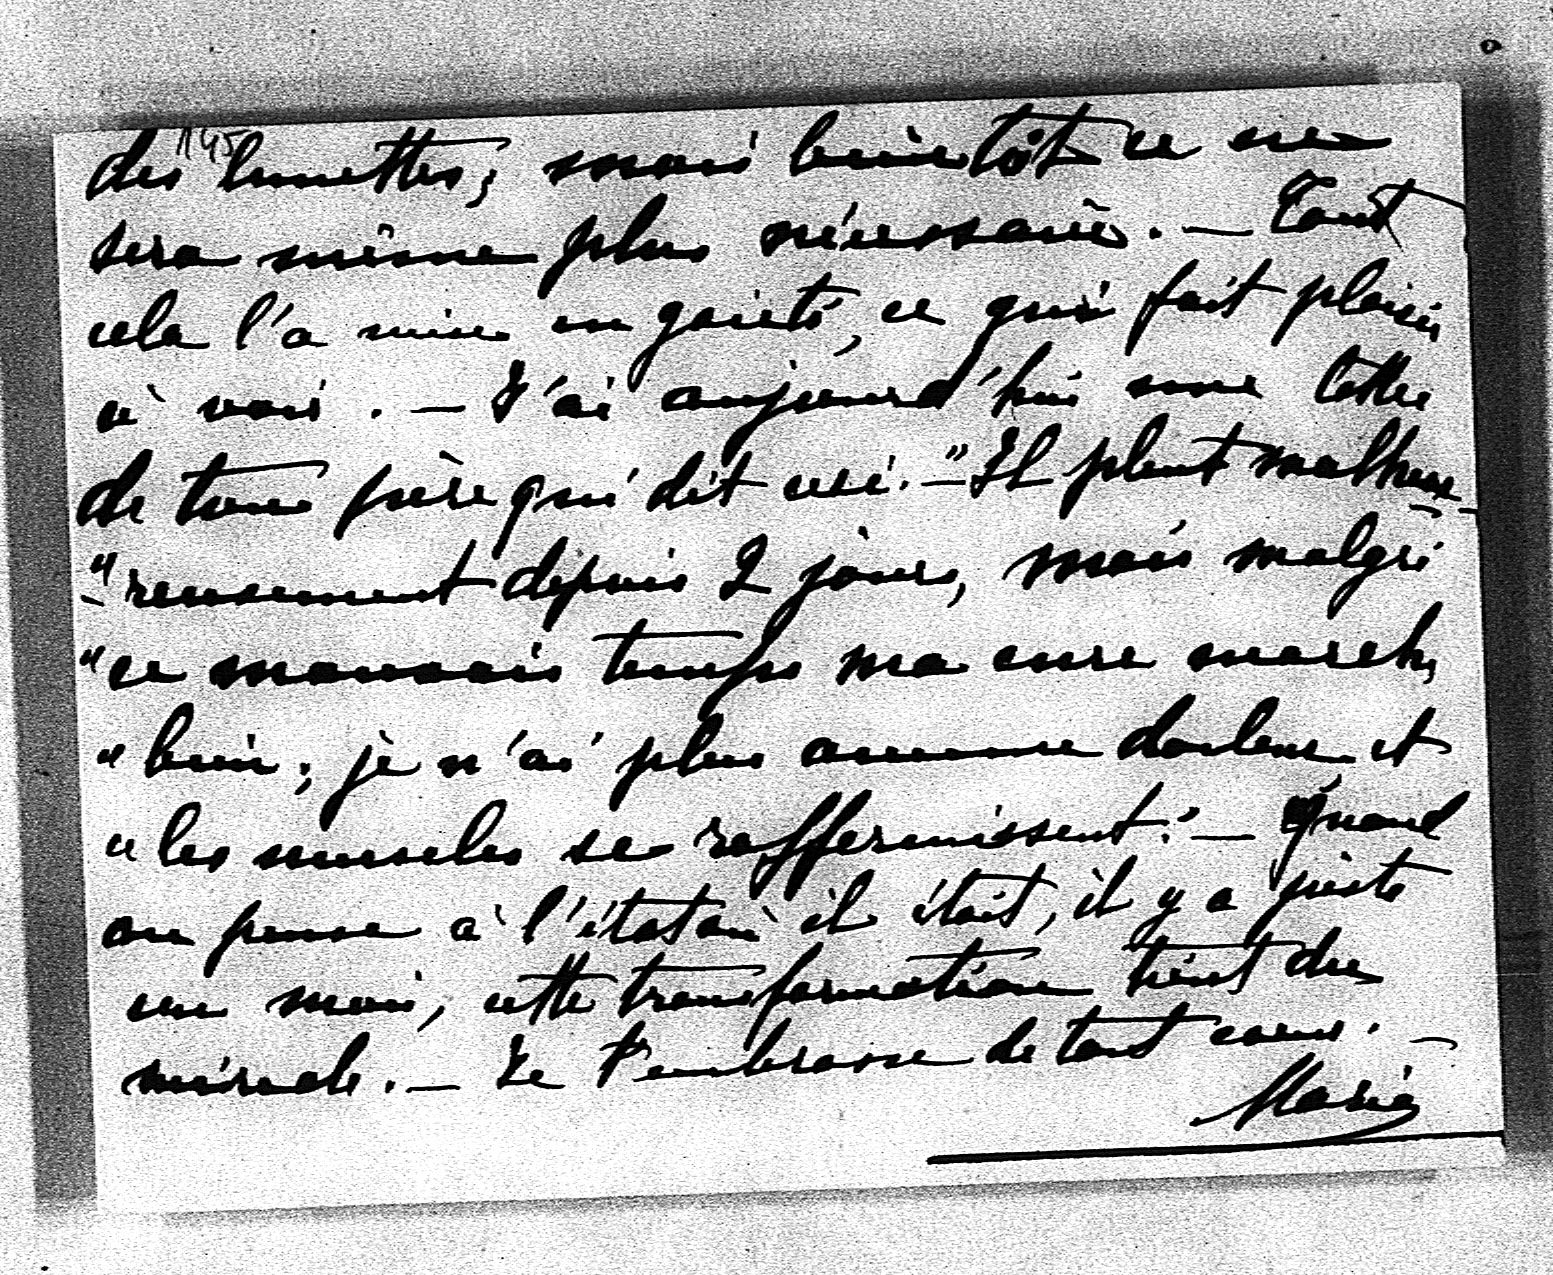 145
des lunettes, mais bientôt ce ne
sera même plus nécessaire. — Tout
cela l'a mise en gaieté, ce qui fait plaisir
à voir. — J'ai aujourd'hui une lettre
de ton père qui dit ceci. — "Il pleut malheu-
"reusement depuis 2 jours, mais malgré
"ce mauvais temps ma cure marche
"bien, je n'ai plus aucune douleur et
"les muscles se raffermissent." — Quand
on pense à l'état où il était, il y a juste
un mois, cette transformation tient du
miracle. — Je t'embrasse de tout cœur. —
Marie